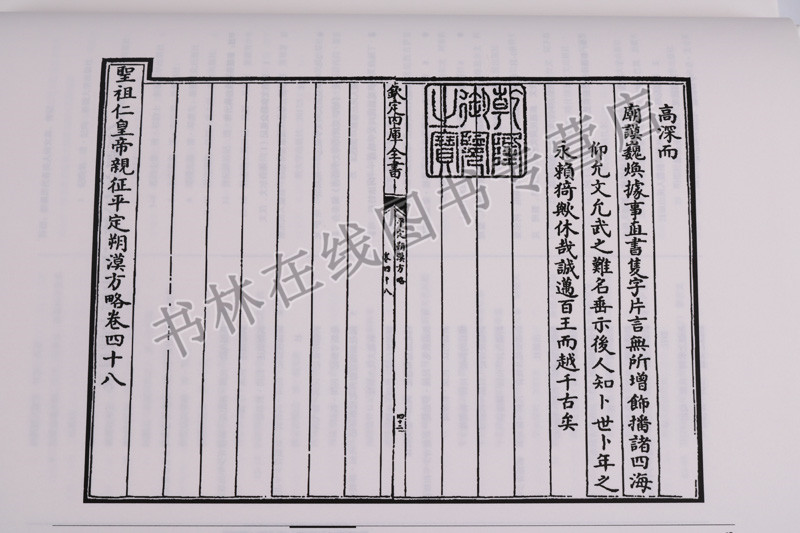 高深而
廟謨巍煥據事直書隻字片言無所增飾播諸四海
仰允文允武之難名垂示後人知卜世卜年之
永賴猗歟休哉誠邁百王而越千古矣
乾隆御覽之寶
欽定四庫全書
平定朔漠方略
卷四十八
聖祖仁皇帝親征平定朔漠方略卷四十八
书林在线图书专营店